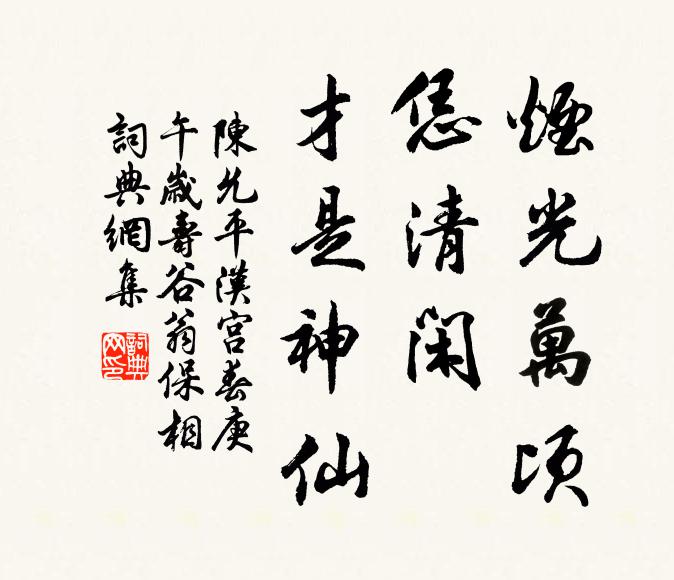 煙光萬頃
恁清閑
才是神仙
陳允平漢宮春庚
午歲壽谷翁保相
詞典網集
詞典
网印